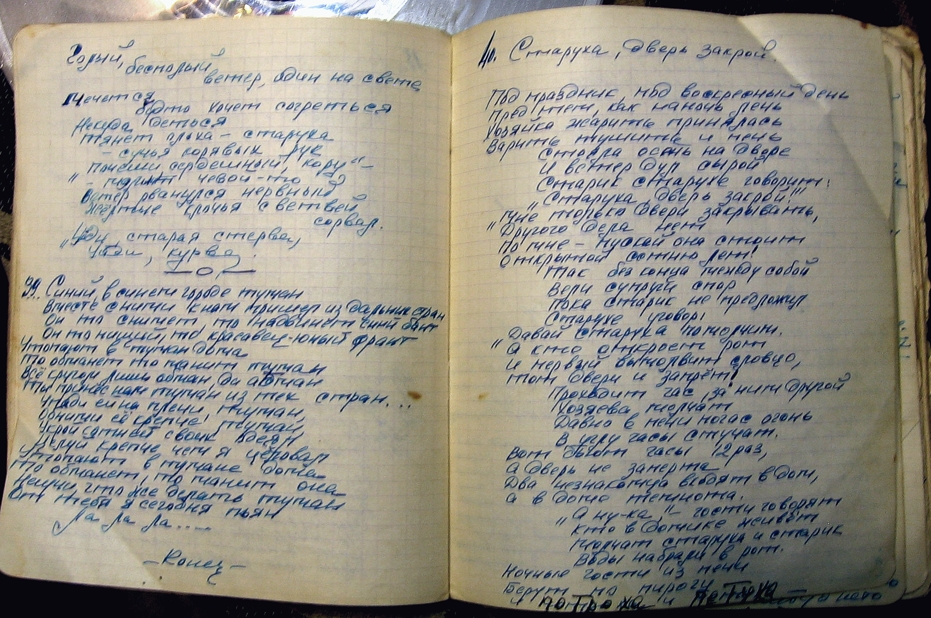 Голый, бесполый,
ветер, один на свете
Мечется
будто хочет согреться
Некуда деться
Тянет
старуха
сучья корявых рук
Почеши сердешный кору"-
чевой-то
Ветер рванулся нервный
Жёлтые клочья с ветвей
сорвал.
"Уйди, старая стерва,
Уйди, курва.
39. Синий, в синем городе туман
Вместе с ними к нам пришел из дальних стран
Он то снимет то надвинет синий
Он то нищий, то красавец-юный франт
Утопают в туман дома
То обманет то манит туман
Всё кругом лишь обман, да обман
Ты принес нам туман из тех стран...
Упади ей на плечи, туман,
Обними её крепче туман,
Укрой
своих
Целуй крепче чем я целовал
Утопают в тумане дома
То обманет, то манит она
что же делать туман
От тебя я сегодня пьян
Ла ла ла....
-Конец-
40. Старуха, дверь закрой.
Под праздник, под воскресный день
Пред тем, как на ночь лечь
Хозяйка жарить принялась
Варить тушить и печь
Стояла осень на дворе
И ветер дул сырой
Старик старухе говорит:
"Старуха дверь закрой!"
"Мне только двери закрывать,
Другого дела нет
По мне - пускай она стоит
Открытой сотню лет!
Так без конца между собой
Вели супруги спор
Пока старик не предложил
Старухе уговор:
"Давай старуха помолчим.
А кто откроет рот
И первый вымолвит словцо,
Тот двери и запрёт!
Проходит час, за ним другой
Хозяева молчат
Давно в печи погас огонь
В углу часы стучат.
Вот бьют часы 12 раз,
А дверь не заперта
Два незнакомца входят в дом,
а в доме темнота.
"А ну-ка,"- гости говорят
Кто в домике живёт
Молчат старуха и старик
Воды набрали в рот.
Ночные гости из печи
Берут по пирогу
И